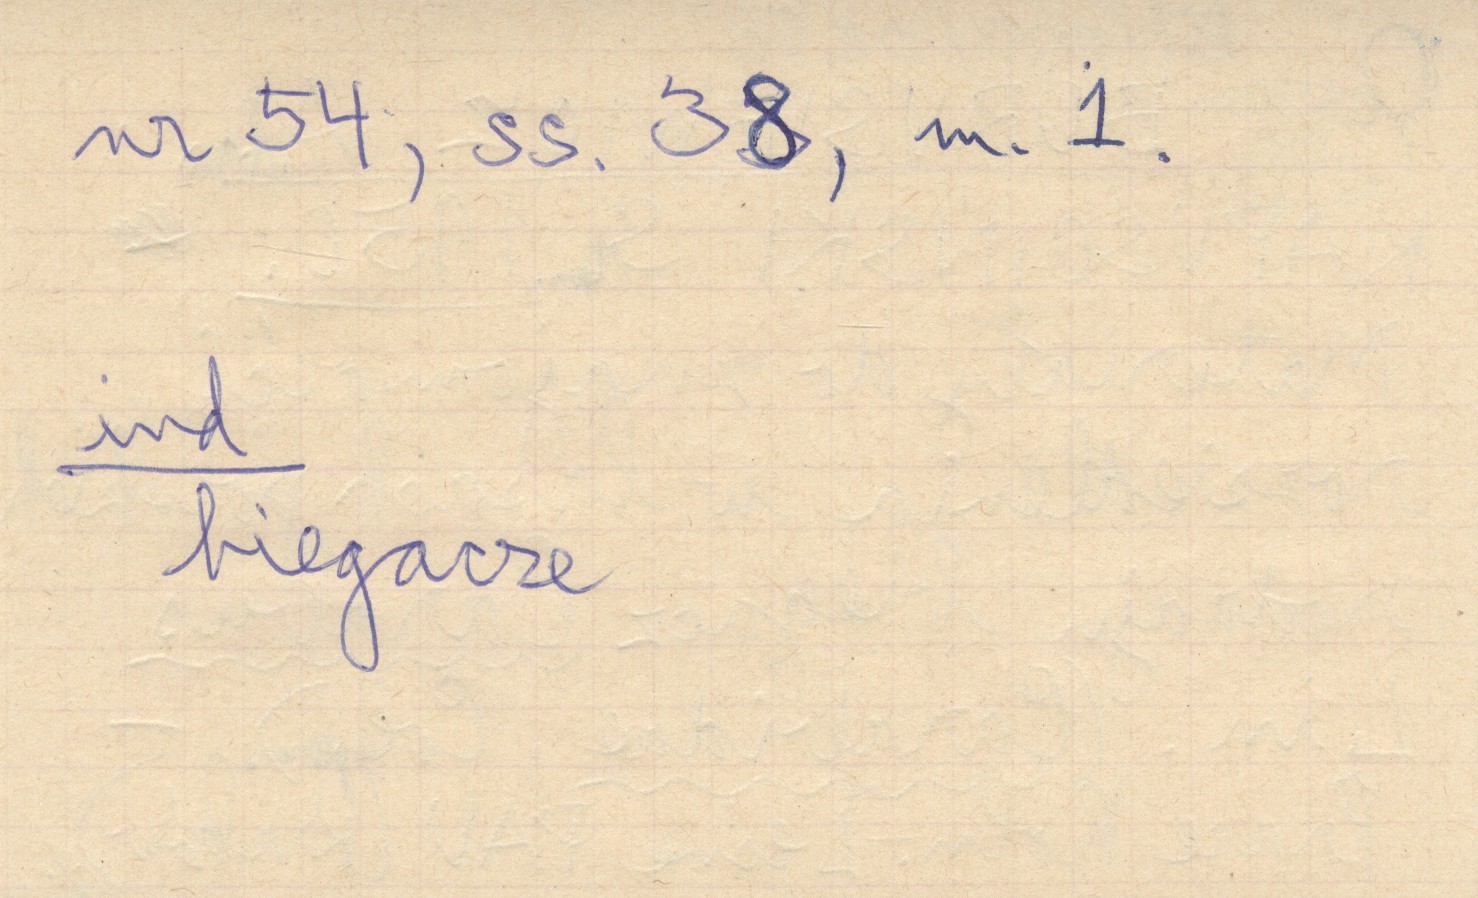 nr 54, ss. 38, m. 1.
ind
biegacze